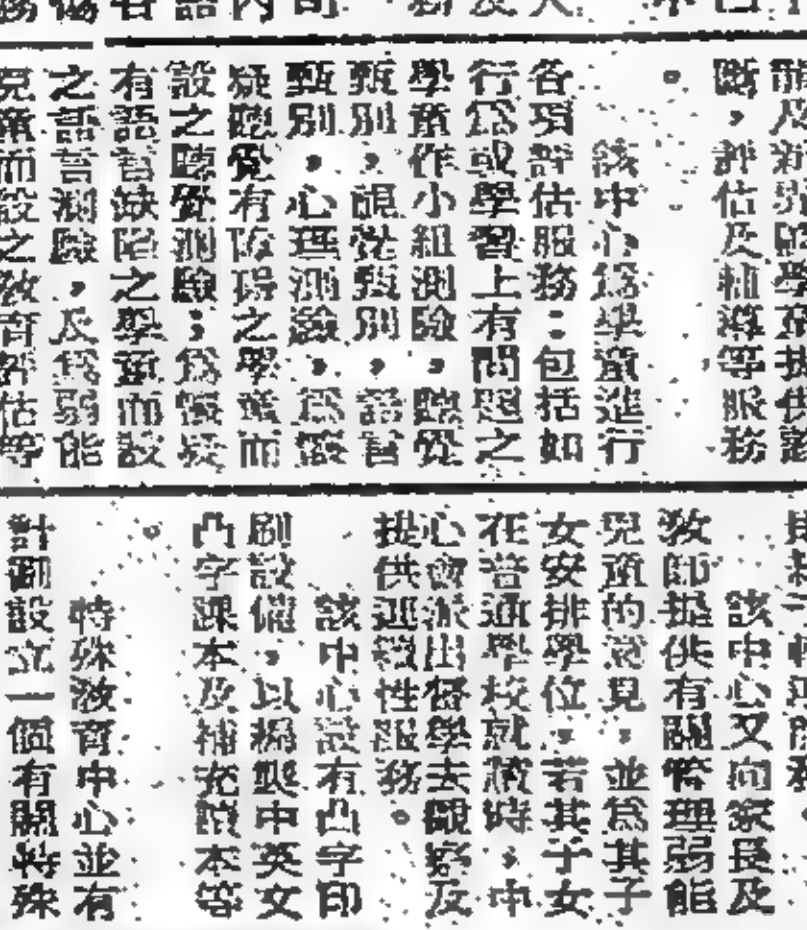 斷，評估及輔導等服務
。
該中心為學童進行
各項評估服務：包括如
行為或學習上有問題之
學童作小組測驗，聽覺
甄別，視覺甄別，語言
甄別，心理測驗，為懷
疑聽覺有障礙之學童而
設之聽覺測驗；為懷疑
有語言缺陷之學童而設
之語言測驗，及為弱能
兒童而設之教育評估等
該中心又向家長及
教師提供有關管理弱能
兒童的意見，並為其子
女安排學位，若其子女
在普通學校就讀時，中
心會派出督學去觀察及
提供連繫性服務。
該中心設有凸字印
刷設備，以編製中英文
凸字課本及補充讀本等
。
特殊教育中心並有
計劃設立一個有關特殊